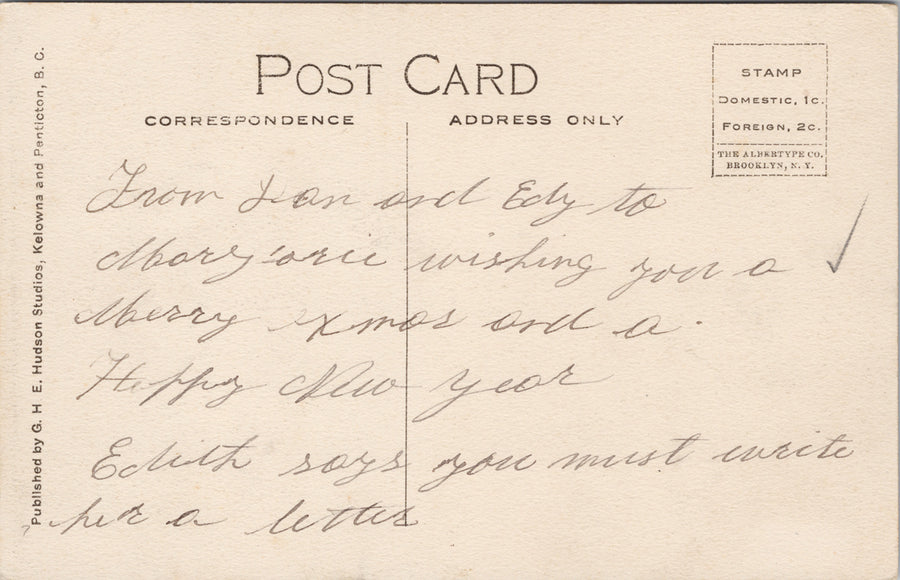 POST CARD
CORRESPONDENCE
ADDRESS ONLY
STAMP
DOMESTIC, 1c.
FOREIGN, 2c.
THE ALBERTYPE CO.
BROOKLYN, N. Y.
Published by G. H E. Hudson Studios, Kelowna and Penticton, B. C.
From and Edy to
Marjorie wishing you a
Merry Xmas and a
Happy New Year
Edith says you must write
her a letter